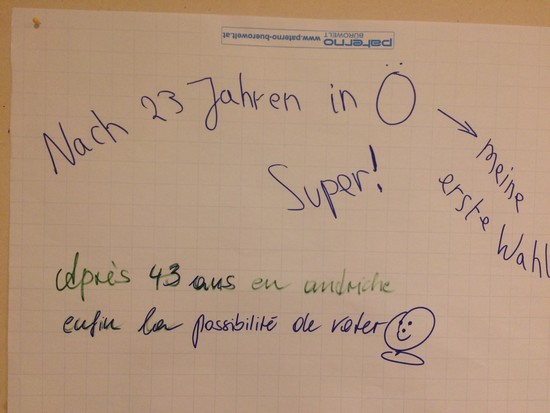 paterno
BÜROWELT
www.paterno-buerowelt.at
Nach 23 Jahren in Ö → meine
erste Wahl
Super!
Après 43 ans en autriche
enfin la possibilité de voter